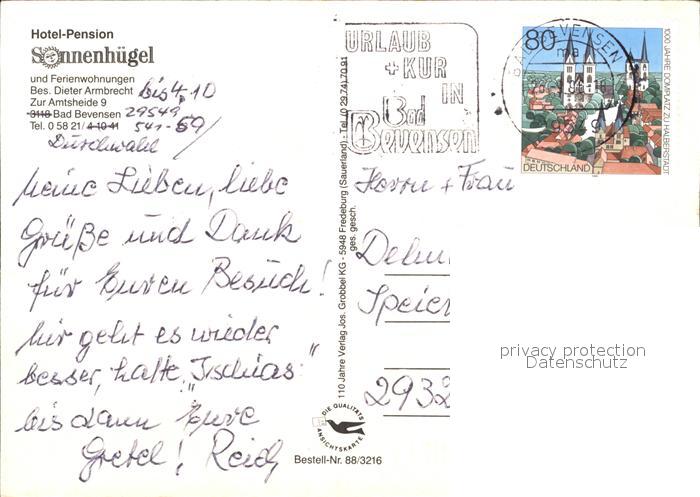 Hotel-Pension
Sonnenhügel
und Ferienwohnungen
Bes. Dieter Armbrecht
Zur Amtsheide 9
3118 Bad Bevensen 29549
Tel. 0 58 21/4 10 41 541-59/
bis 4.10
Durchwahl
meine Lieben, liebe
Grüße und Dank
für Euren Besuch!
mir geht es wieder
besser, hatte "Ischias"
bis dann Eure
Gretel!
110 Jahre Verlag Jos. Grobbel KG - 5948 Fredeburg (Sauerland) - Tel. (0 29 74) 70 91
ges. gesch.
DIE QUALITÄTS
ANSICHTSKARTE
Bestell-Nr. 88/3216
URLAUB
+ KUR
IN
Bad
Bevensen
BAD BEVENSEN
80
DEUTSCHLAND
1000 JAHRE DOMPLATZ ZU HALBERSTADT
Herrn + Frau
Speier
2932
privacy protection
Datenschutz